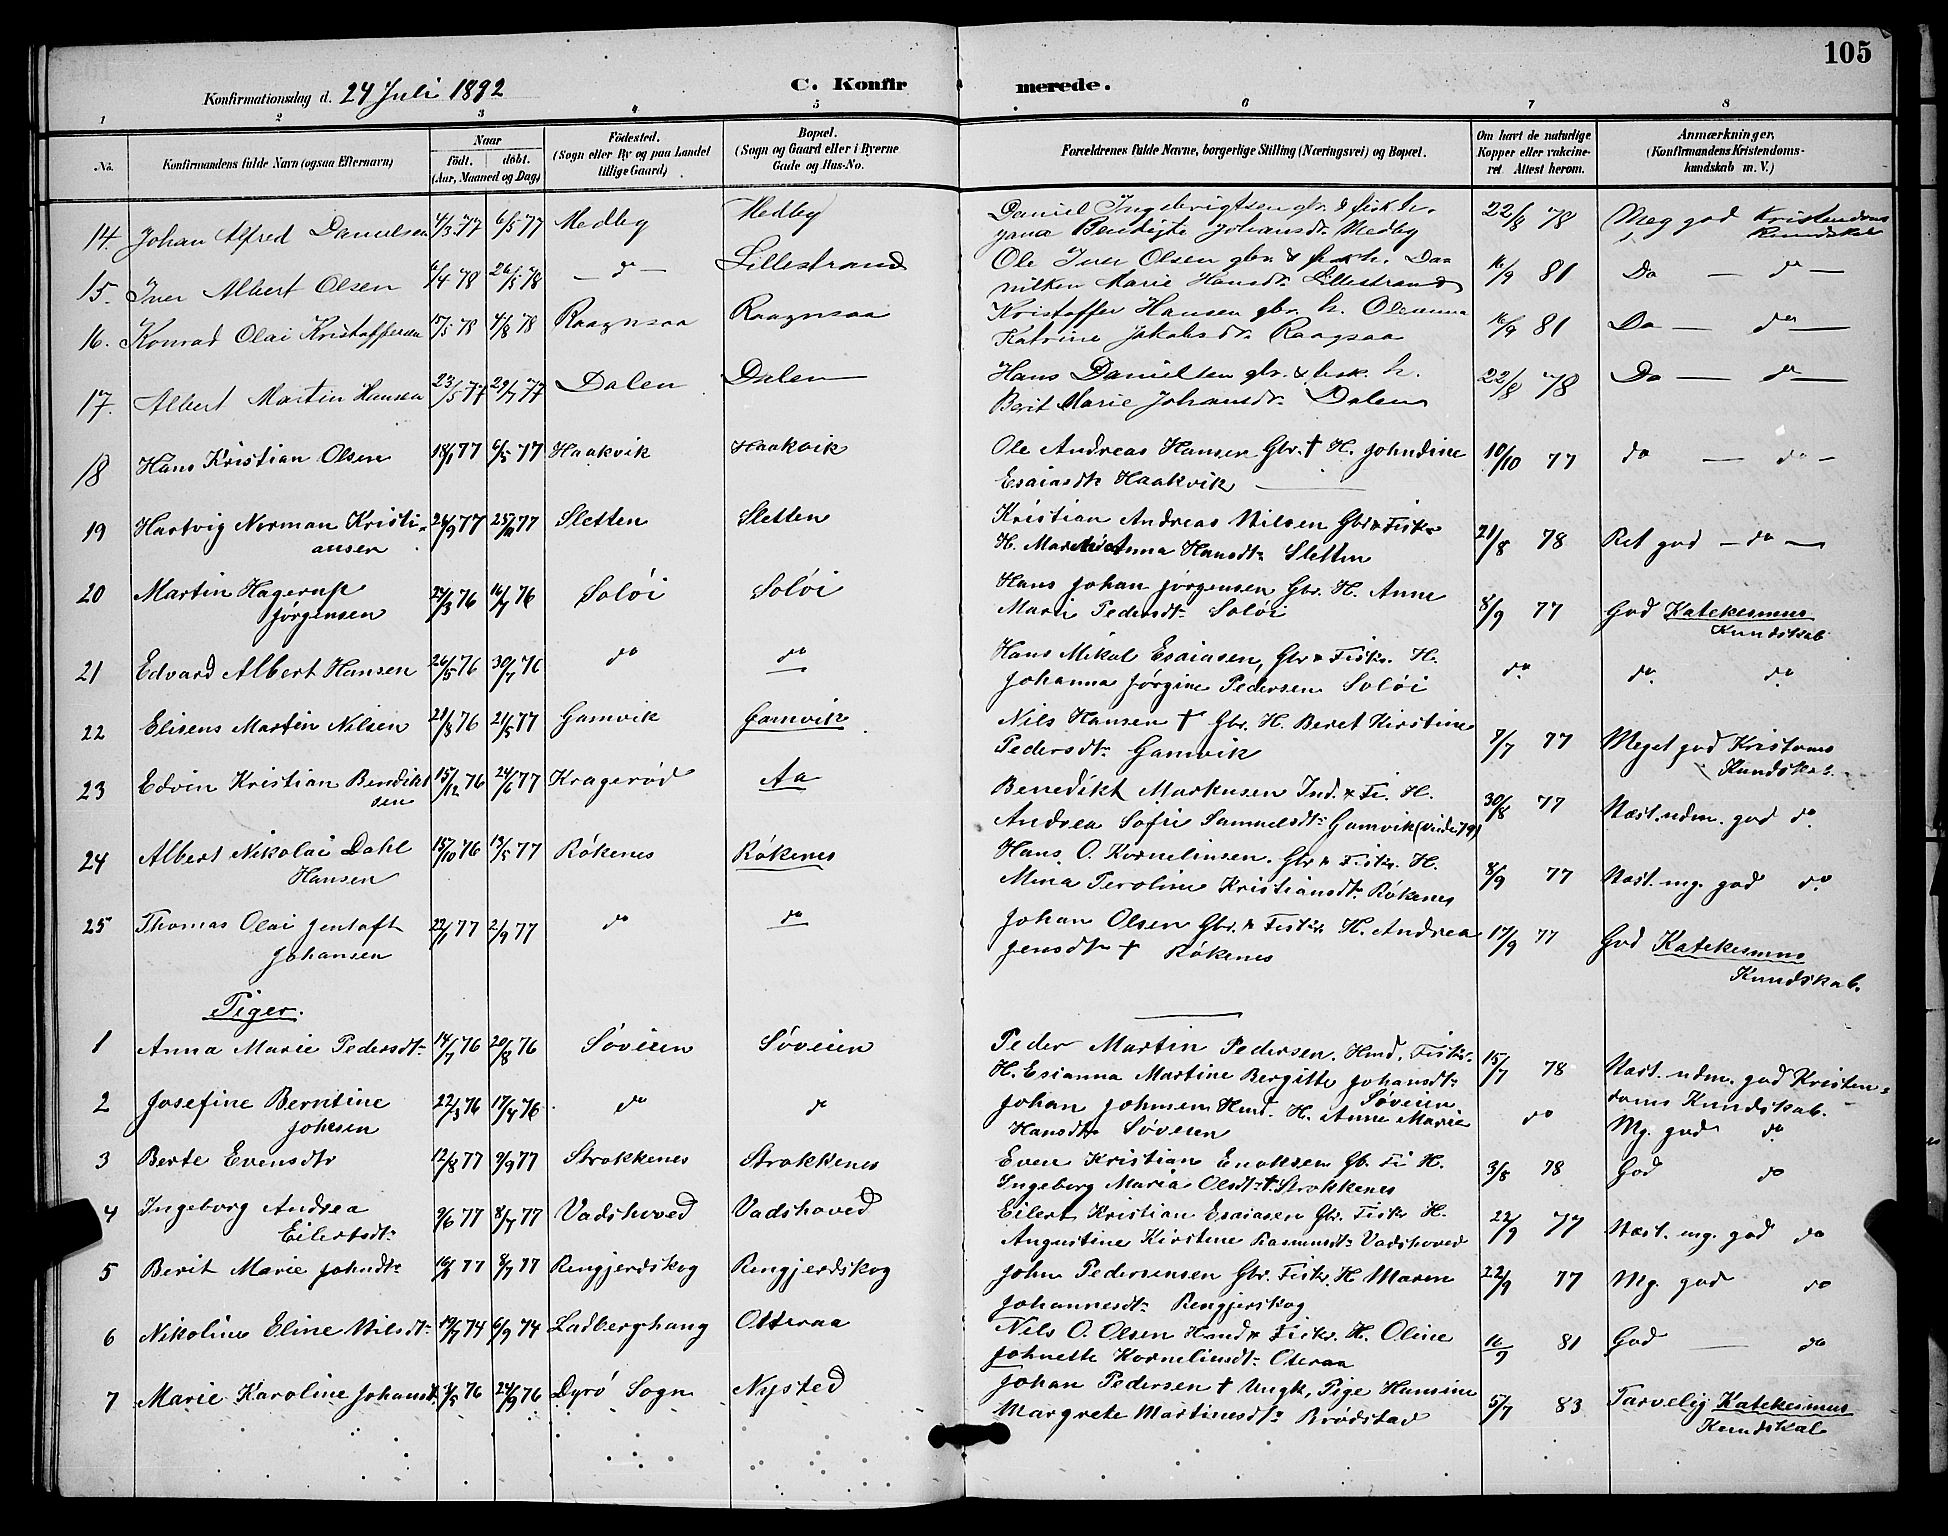 105
Konfirmationsdag d. 24 Juli 1892
C. Konfir merede.
1 2 3 4 5 6 7 8
No.
Konfirmandens fulde Navn (ogsaa Efternavn)
Naar
födt. döbt.
(Aar, Maaned og Dag)
Födested.
(Sogn eller By og paa Landet
tillige Gaard)
Bopæl.
(Sogn og Gaard eller i Byerne
Gade og Hus-No.
Forældrenes fulde Navne, borgerlige Stilling (Næringsvei) og Bopæl.
Om havt de naturlige
Kopper eller vakcine-
ret Attest herom.
Anmærkninger,
(Konfirmandens Kristendoms-
kundskab m. V.)
14. Johan Alfred Danielsen 4/3 77 6/5 77 Medby Medby Daniel Ingebrigtsen gbr. & fisk h. 22/8 78 Meg god Kristendoms
Bendigte Johansdr Medby Kundskab
15. Iver Albert Olsen 6/4 78 26/5 78 — do — Lillestrand Ole Iver Olsen gbr. & fisk h. Dan 16/9 81 Do — do —
nikken Marie Hansdr Lillestrand
16. Konrad Olai Kristoffersen 15/5 78 4/8 78 Raagnsaa Raagnsaa Kristoffer Hansen gbr. h. Oleanna 16/9 81 Do — do —
Katrine Jakobsdr. Raagsaa
17. Albert Martin Hansen 23/5 77 29/7 77 Dalen Dalen Hans Danielsen gbr. & fisk. h. 22/8 78 Do — do —
Berit Marie Johansdr. Dalen
18 Hans Kristian Olsen 18/1 77 6/5 77 Haakvik Haakvik Ole Andreas Hansen Gbr. † H. Johndine 10/10 77 do — do —
Esaiasdtr Haakvik
19 Hartvig Norman Kristi- 77 77 Sletten Sletten Kristian Andreas Nilsen Gbr & Fisker 21/8 78 Ret god — do —
ansen H. Anna Hansdtr Sletten
20 Martin Hagerup 24/3 76 16/7 76 Solöi Solöi Hans Johan Jörgensen Gbr. H. Anne 8/9 77 God Katekesmus
Jörgensen Mari Pedersdtr Solöi Kundskab
21 Edvard Albert Hansen 26/5 76 30/7 76 do do Hans Mikal Esaiasen, Gbr & Fiskr. H. do do do
Johanna Jörgine Pedersen Solöi
22 Eliseus Martin Nilsen 21/3 76 21/5 77 Gamvik Gamvik Nils Hansen † Gbr. H. Beret Kirstine 9/7 77 Meget god Kristoms
Pedersdtr Gamvik Kundskab.
23 Edvin Kristian Bendikt 15/12 76 24/6 77 Kragerød Aa Benedikt Markusen Ind. & Fi. H. 30/8 77 Næst. udm. god do
sen Andrea Sofie Samuelsdtr Gamvik
24 Albert Nikolai Dahl 15/10 76 13/5 77 Rökenes Rökenes Hans O. Korneliusen. Gbr & Fiskr. H. 8/9 77 Næst. mg. god do
Hansen Mina Peroline Kristiansdtr Rökenes
25 Thomas Olai Jentoft 22/1 77 2/9 77 do do Johan Olsen Gbr. & Fiskr. H. Andrea 17/9 77 God Katekesmus
Johansen Jensdtr † Rökenes Kundskab.
Piger.
1 Anna Marie Pedersdtr 14/7 76 20/8 76 Söveien Söveien Peder Martin Pedersen. Hmd. Fisker. 15/7 78 Næst. udm. god Kristen-
H. Esianna Martine Bergitte Johansdtr doms Kundskab.
Söveien
2 Josefine Berntine 22/3 76 17/4 76 do do Johan Johnsen Hmd. H. Anne Marie do Mg. god do
Johnsen Hansdtr Söveien
3 Berte Evensdtr 12/8 77 9/9 77 Strokkenes Strokkenes Even Kristian Enoksen Gb. Fi H. 3/8 78 God do
Ingeborg Maria Olsdtr † Strokkenes
4 Ingeborg Andrea 9/6 77 8/7 77 Vadshoved Vadshoved Eilert Kristian Esaiasen Gbr. Fiskr H. 22/9 77 Næst. mg. god do
Eilertsdtr Augustine Kirstine Rasmusdtr Vadshoved
5 Berit Marie Johndtr 77 8/7 77 Rengjerdskog Rengjerdskog John Pedersensen Gbr. Fiskr. H. Maren 22/9 77 Mg. god do
Johannesdtr Rengjerskog
6 Nikoline Eline Nilsdtr 74 6/9 74 Ladberghang Otteraa Nils O. Olsen Hmd & Fiskr. H. Oline 16/9 81 God — do
Johnette Korneliusdtr Oteraa
7 Marie Karoline Johansd. 76 24/9 76 Dyrö Sogn Nysted Johan Pedersen † Ungk. Pige Hansine 5/7 83 Tarvelig Katekesmus
Margrete Martinusdtr Brödstad Kundskab